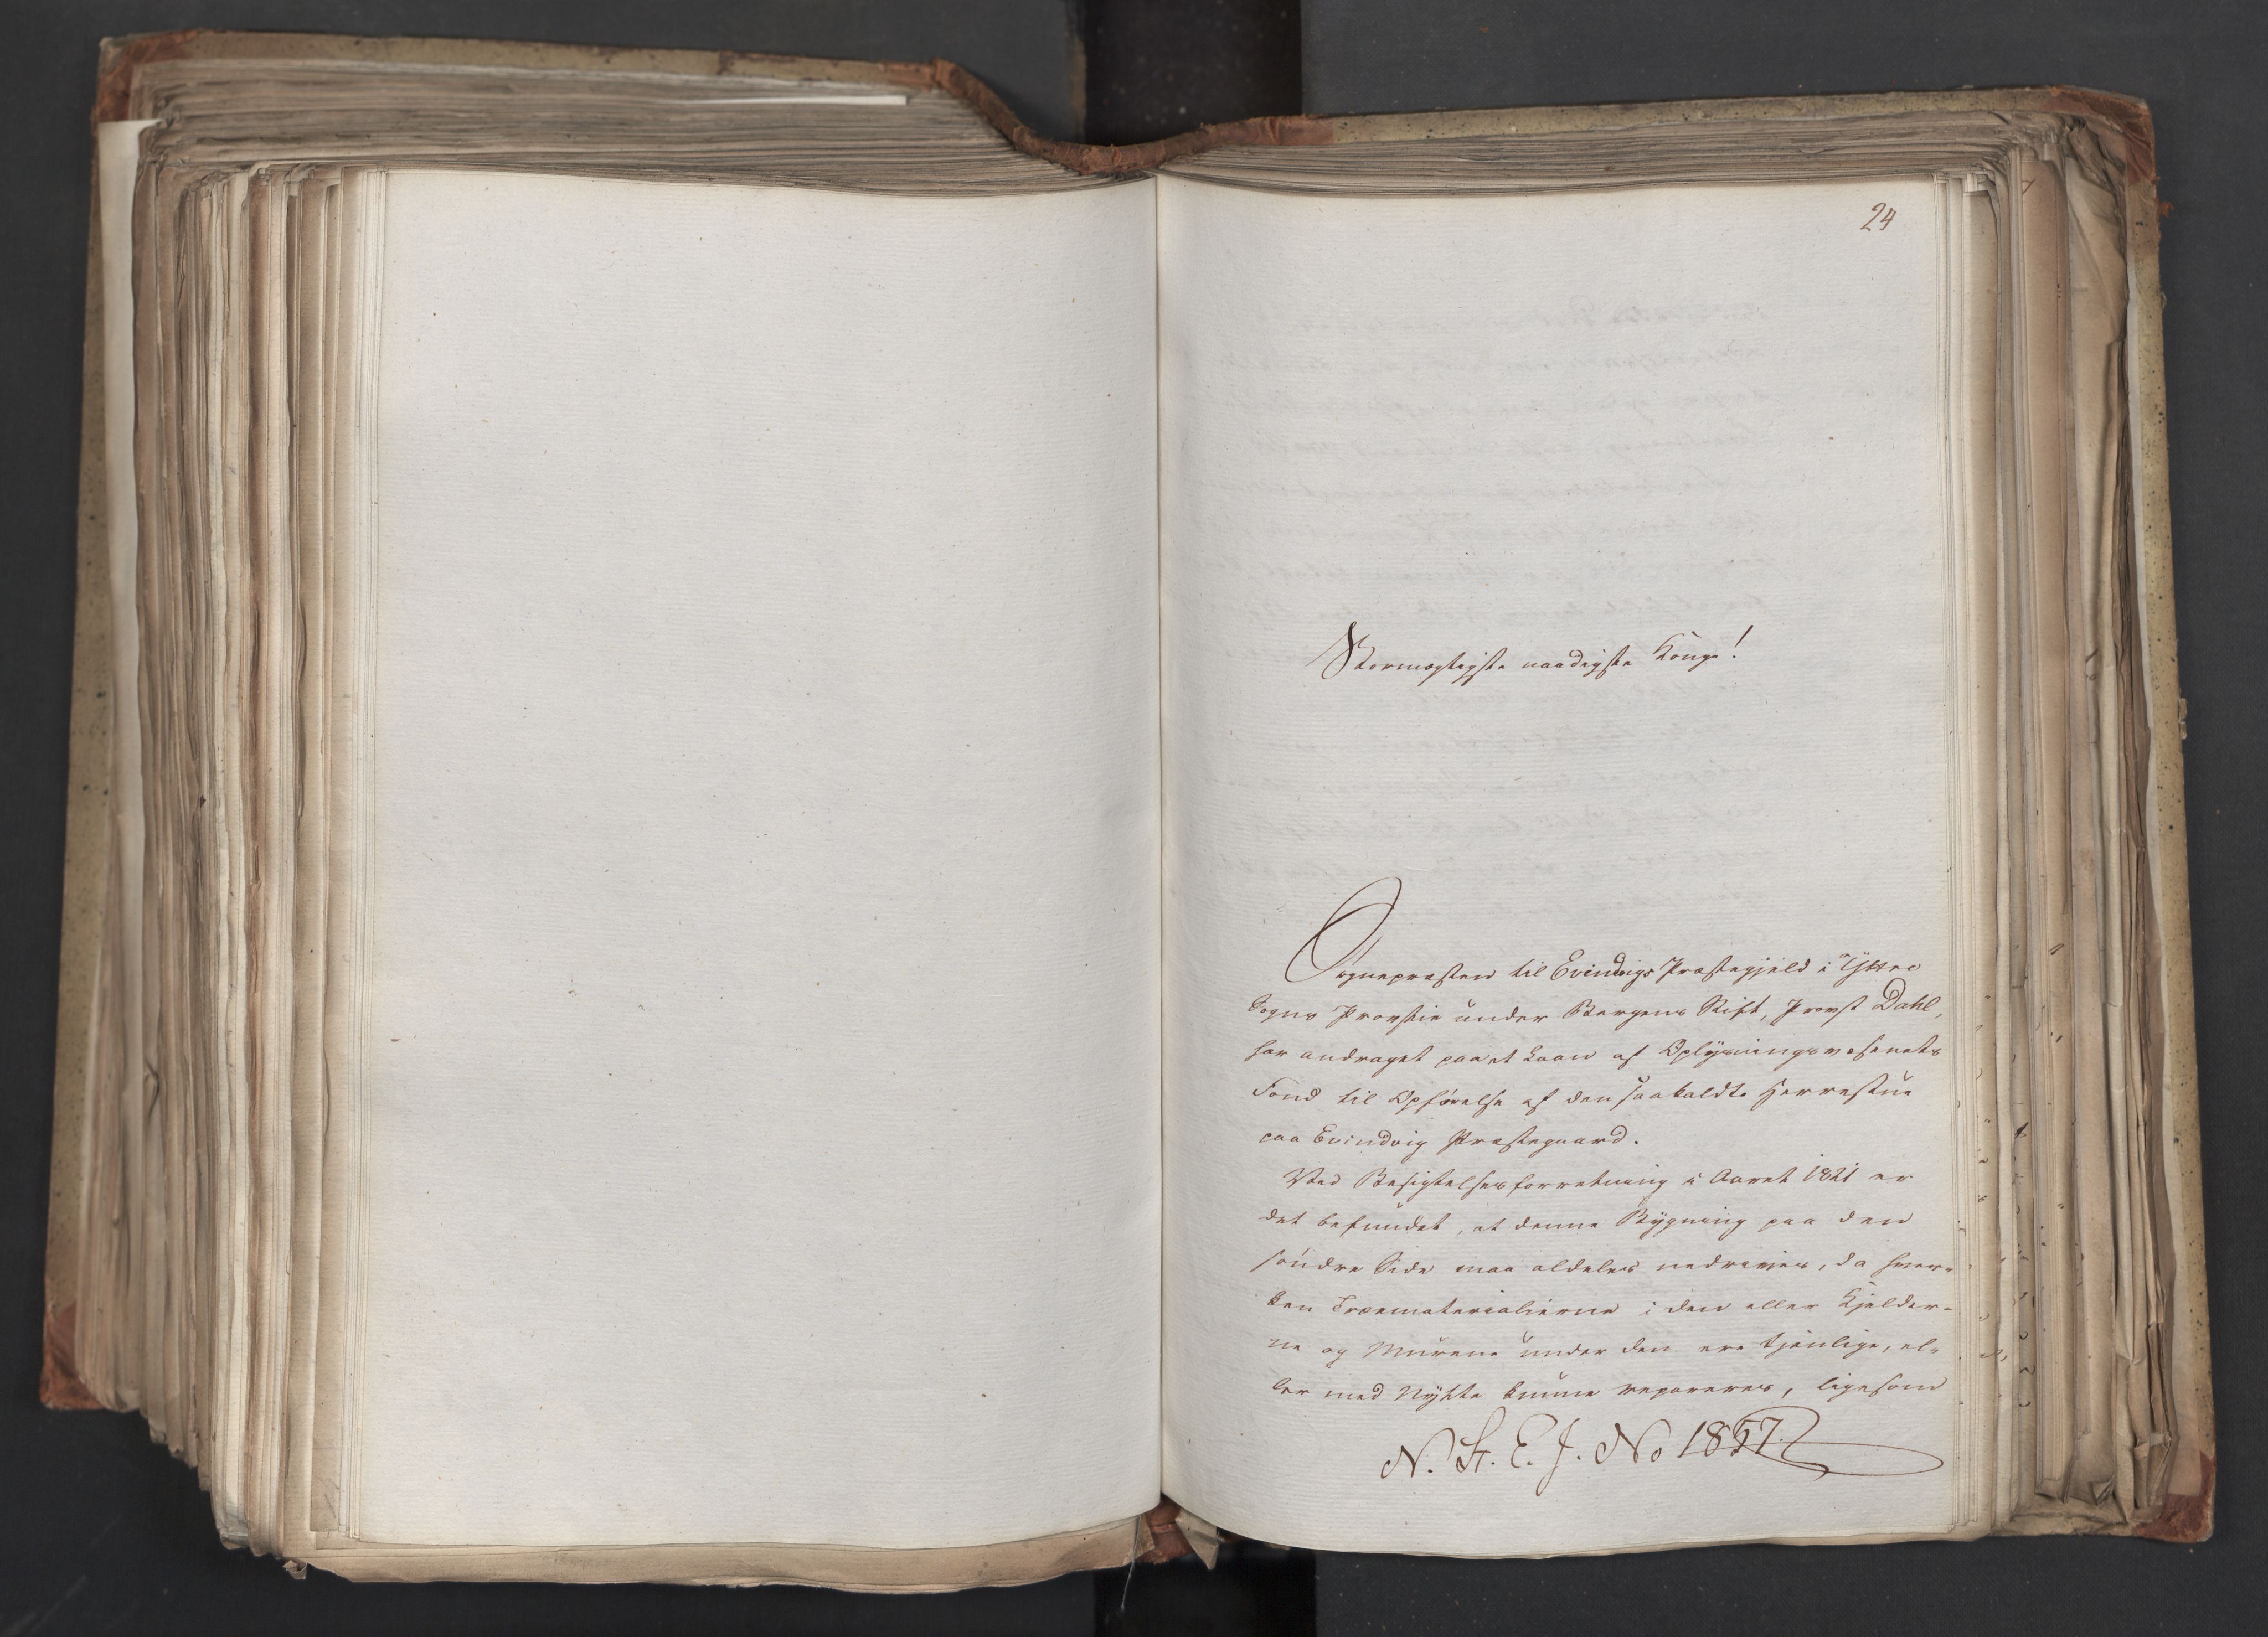 24
Stormægtigste naadigste Konge!
Sognepræsten til Evindvigs Præstegjeld i Yttre
Sogns Provstie under Bergens Stift, Provst Dahl,
har andraget paa et Laan af Oplysningsvæsenets
Fond til Opførelse af den saakaldte Herrestue
paa Evindvig Præstegaard.
Ved Besigtelsesforretning i Aaret 1821 er
det befundet, at denne Bygning paa den
søndre Side maa aldeles nedrives, da hver-
ken Træematerialierne i den eller Kjelder-
ne og Murene under den ere tjenlige, el-
ler med Nytte kunne repareres, ligesom
N. St. E. J. No 1857